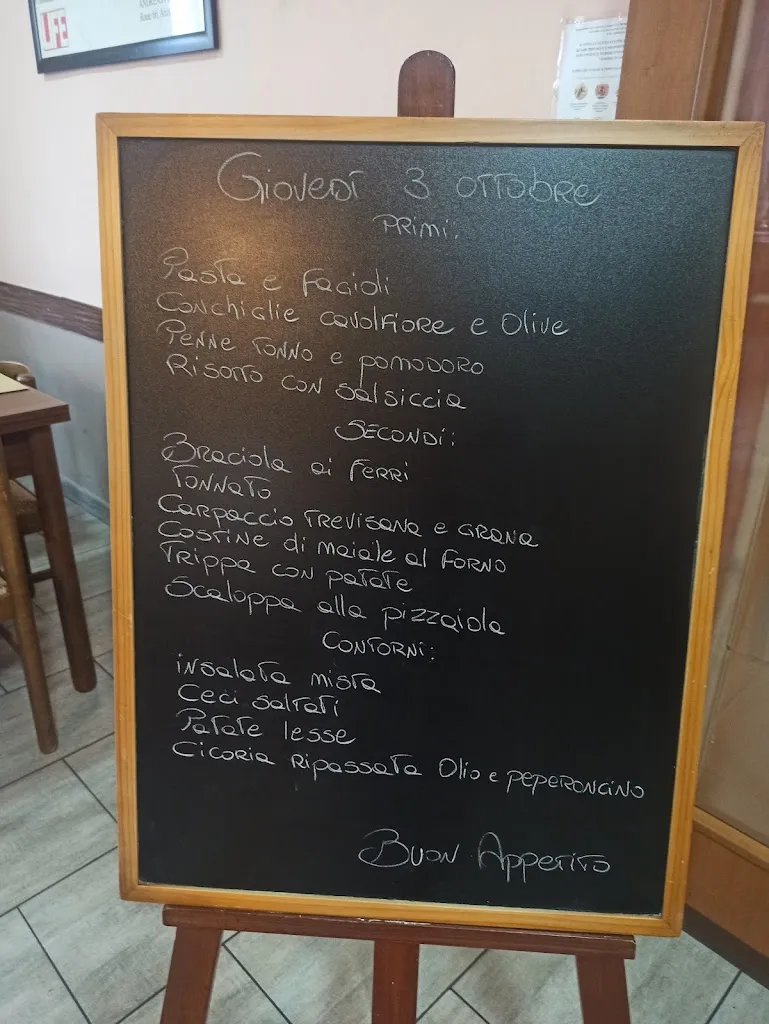 Giovedì 3 ottobre
Primi:
Pasta e fagioli
Conchiglie cavolfiore e Olive
Penne tonno e pomodoro
Risotto con salsiccia
Secondi:
Braciola ai ferri
Tonnato
Carpaccio trevisana e grana
Costine di maiale al forno
Trippa con patate
Scaloppa alla pizzaiola
Contorni:
insalata mista
Ceci saltati
Patate lesse
Cicoria ripassata Olio e peperoncino
Buon Appetito